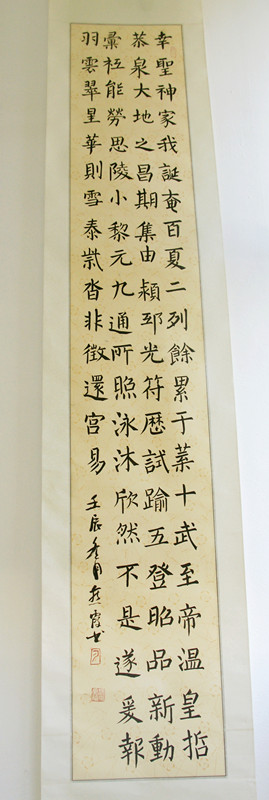 幸聖神家我誕奄百夏二列餘累于葉十武至帝溫皇哲
恭泉大地之昌期集由穎邳光符歷試踰五登昭品新動
彙祗能勞思陵小黎元九通所照泳沐欣然不是遂爰報
羽雲翠星華則雪泰祡沓非徵還宮易 壬辰冬月